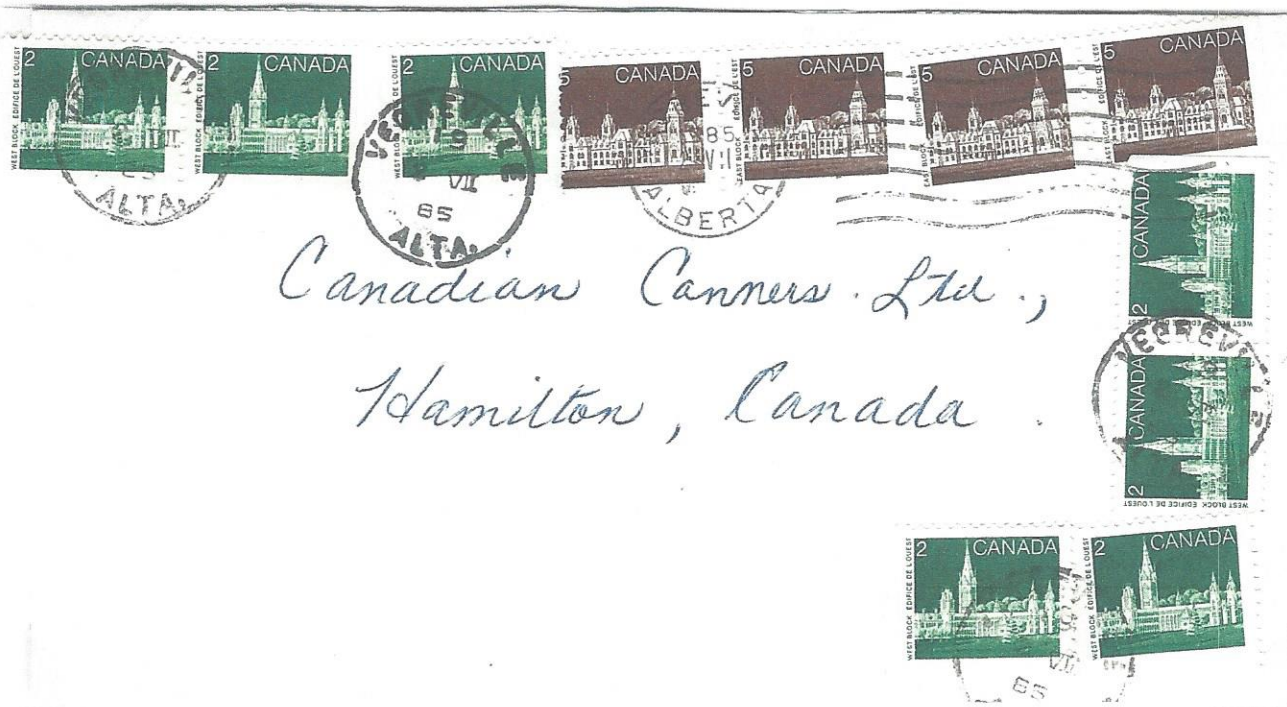 2 CANADA
WEST BLOCK EDIFICE DE L'OUEST
2 CANADA
WEST BLOCK EDIFICE DE L'OUEST
2 CANADA
WEST BLOCK EDIFICE DE L'OUEST
5 CANADA
5 CANADA
EAST BLOCK EDIFICE DE L'EST
5 CANADA
EAST BLOCK EDIFICE DE L'EST
5 CANADA
EAST BLOCK EDIFICE DE L'EST
ALTA.
VEGREVILLE
VII
85
ALTA.
85
VII
ALBERTA
Canadian Canners. Ltd.,
Hamilton, Canada.
2 CANADA
WEST BLOCK EDIFICE DE L'OUEST
2 CANADA
WEST BLOCK EDIFICE DE L'OUEST
2 CANADA
WEST BLOCK EDIFICE DE L'OUEST
2 CANADA
WEST BLOCK EDIFICE DE L'OUEST
VII
85